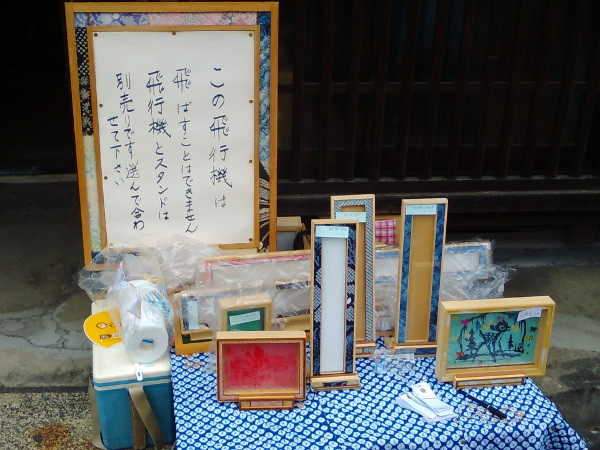 この飛行機は
飛ばすことはできません
飛行機とスタンドは
別売りです。選んで合わ
せて下さい